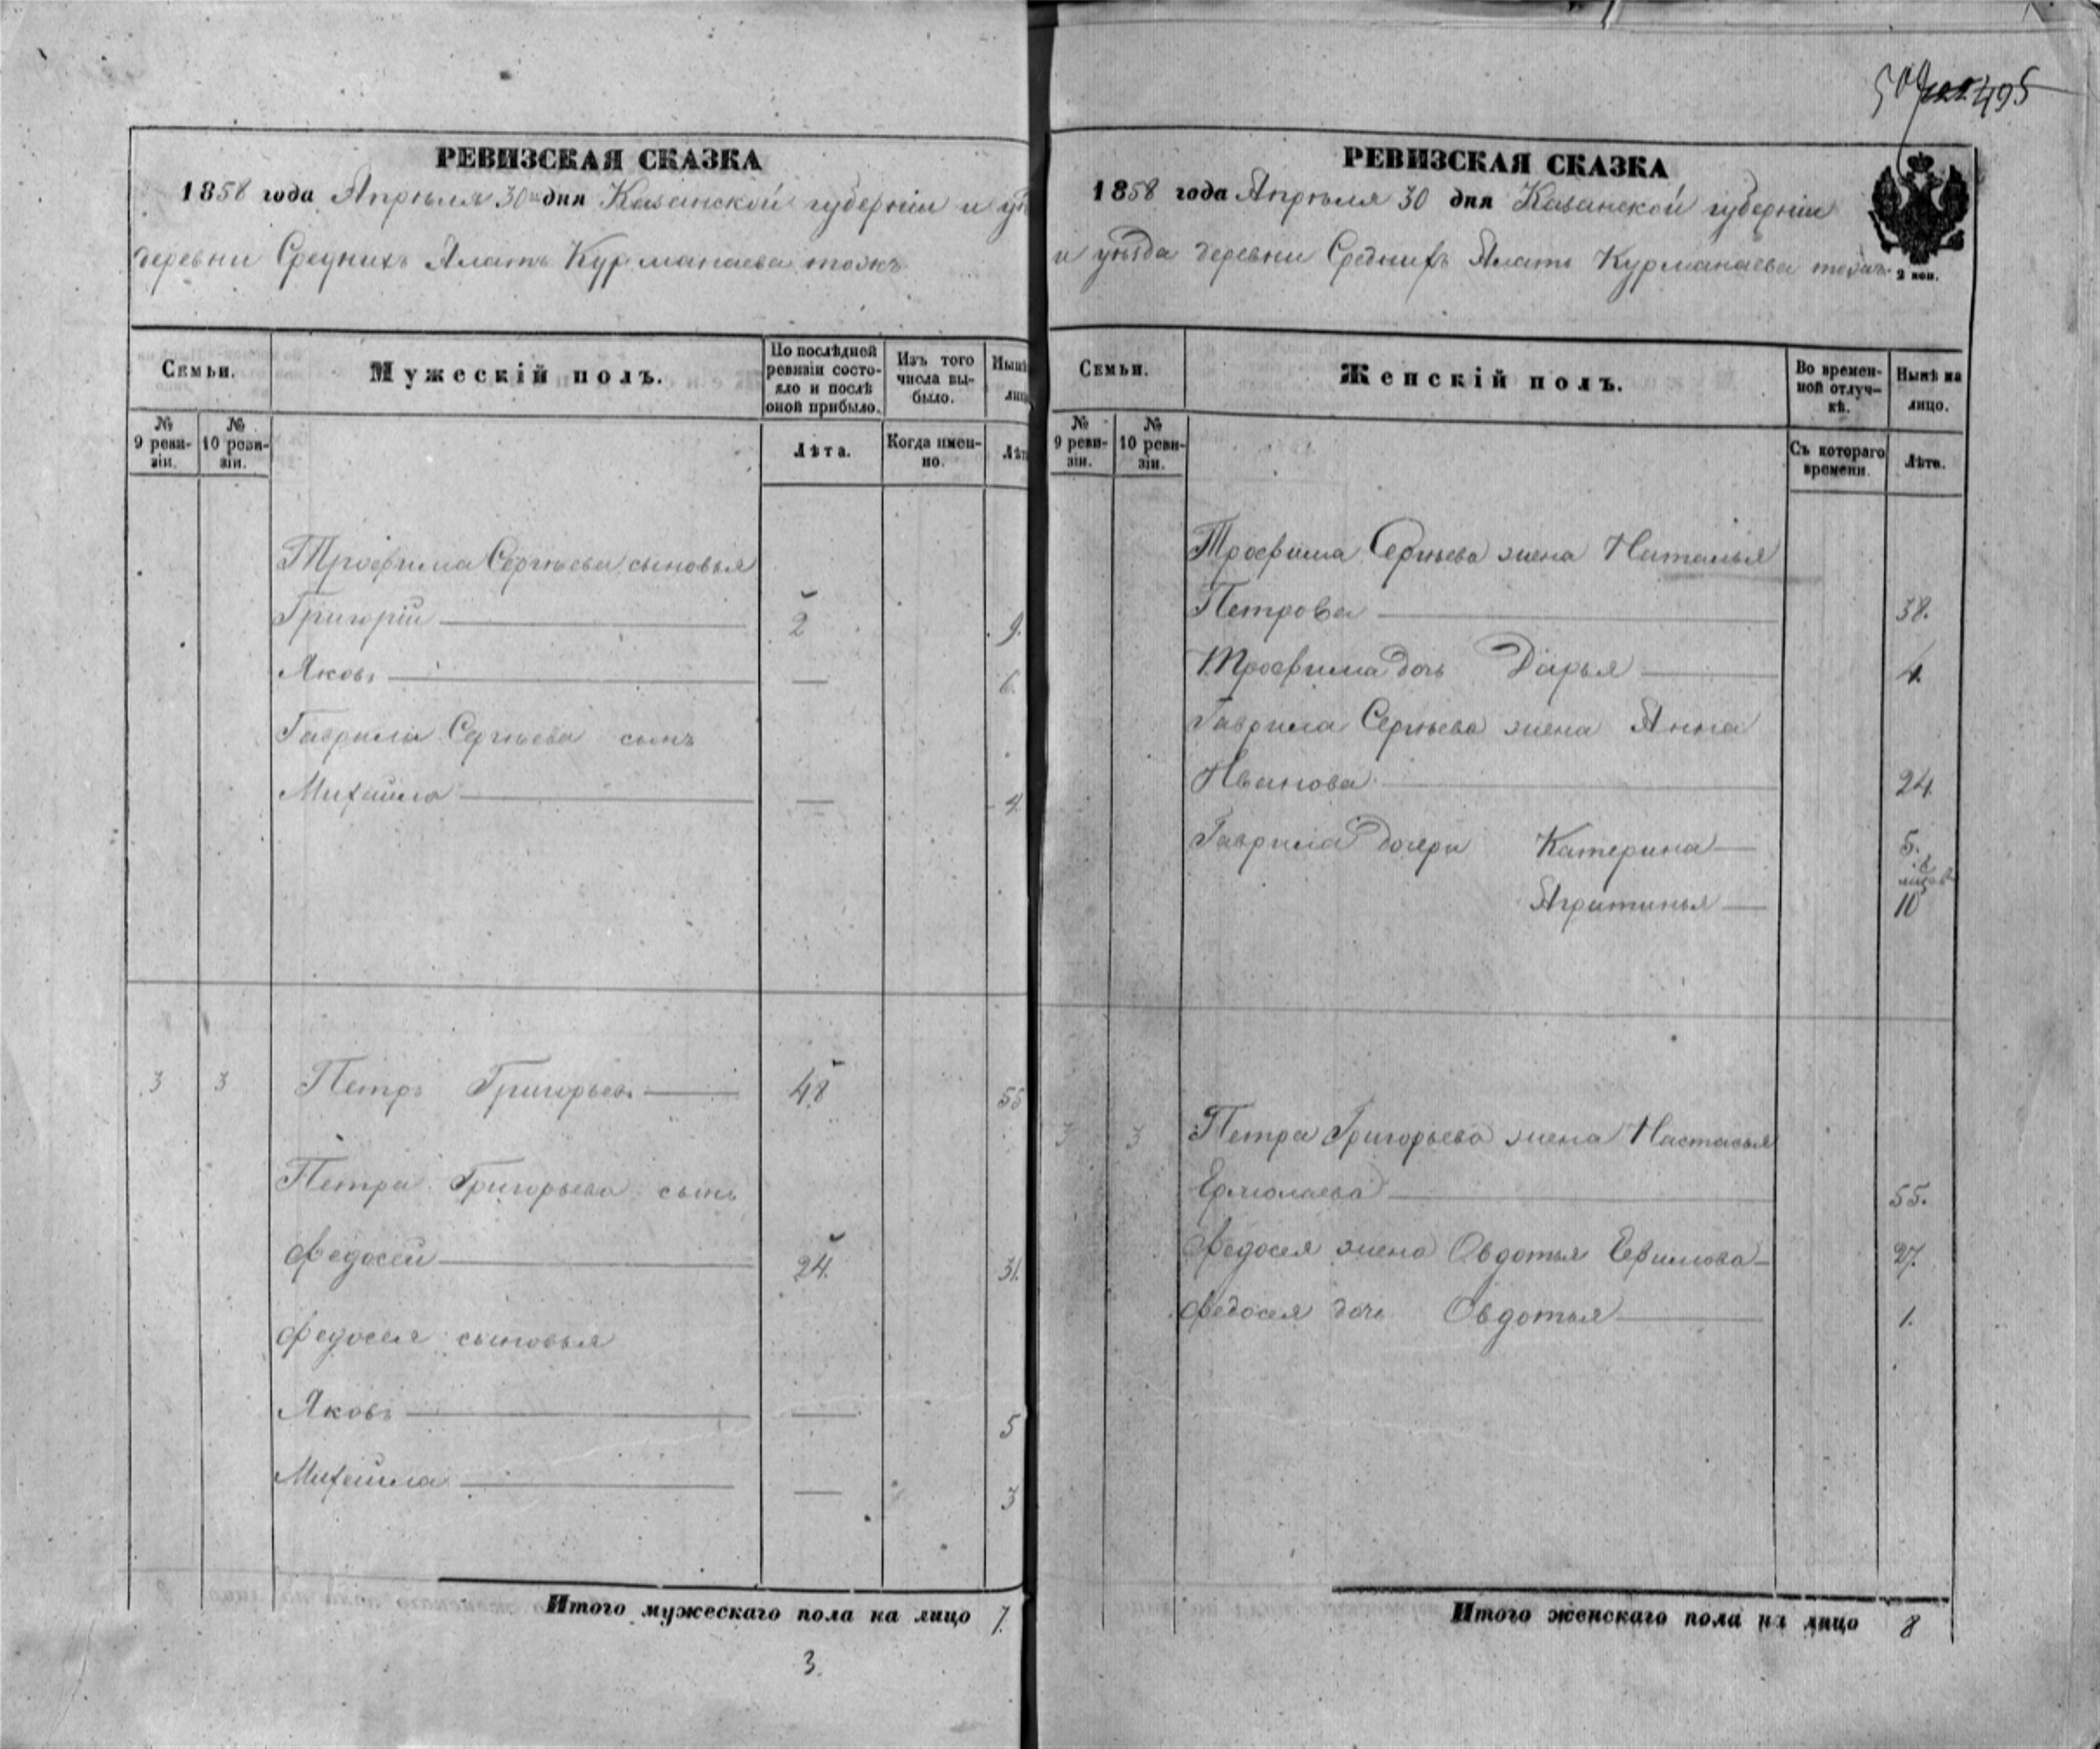 495
РЕВИЗСКАЯ СКАЗКА
1858 года Апрѣля 30 дня Казанской губерніи и
деревни Среднихъ Алатъ Курманаева тожъ
Семьи.
Мужескій полъ.
По послѣдней ревизіи состояло и послѣ оной прибыло.
Изъ того числа выбыло.
Нынѣ
лицо
№ 9 ревизіи.
№ 10 ревизіи.
Лѣта.
Когда именно.
Лѣт
Трофима Сергѣева сыновья
Григорій 2 9.
Яковъ — 6.
Гаврила Сергѣева сынъ
Михайла — 4.
3 3 Петръ Григорьевъ 48 55
Петра Григорьева сынъ
Федосей 24. 31.
Федосея сыновья
Яковъ — 5
Михайла — 3
Итого мужескаго пола на лицо 7.
3.
РЕВИЗСКАЯ СКАЗКА
1858 года Апрѣля 30 дня Казанской губерніи
и уѣзда деревни Среднихъ Алатъ Курманаева тожъ
2 коп.
Семьи.
Женскій полъ.
Во временной отлучкѣ.
Нынѣ на лицо.
№ 9 ревизіи.
№ 10 ревизіи.
Съ котораго времени.
Лѣта.
Трофима Сергѣева жена Наталья
Петрова 38.
Трофима дочь Дарья 4.
Гаврила Сергѣева жена Анна
Иванова 24.
Гаврила дочери Катерина 5.
Аграпинья 10
3 3 Петра Григорьева жена Настасья
Ермолаева 55.
Федосея жена Овдотья Ефимова 27.
Федосея дочь Овдотья 1.
Итого женскаго пола на лицо 8